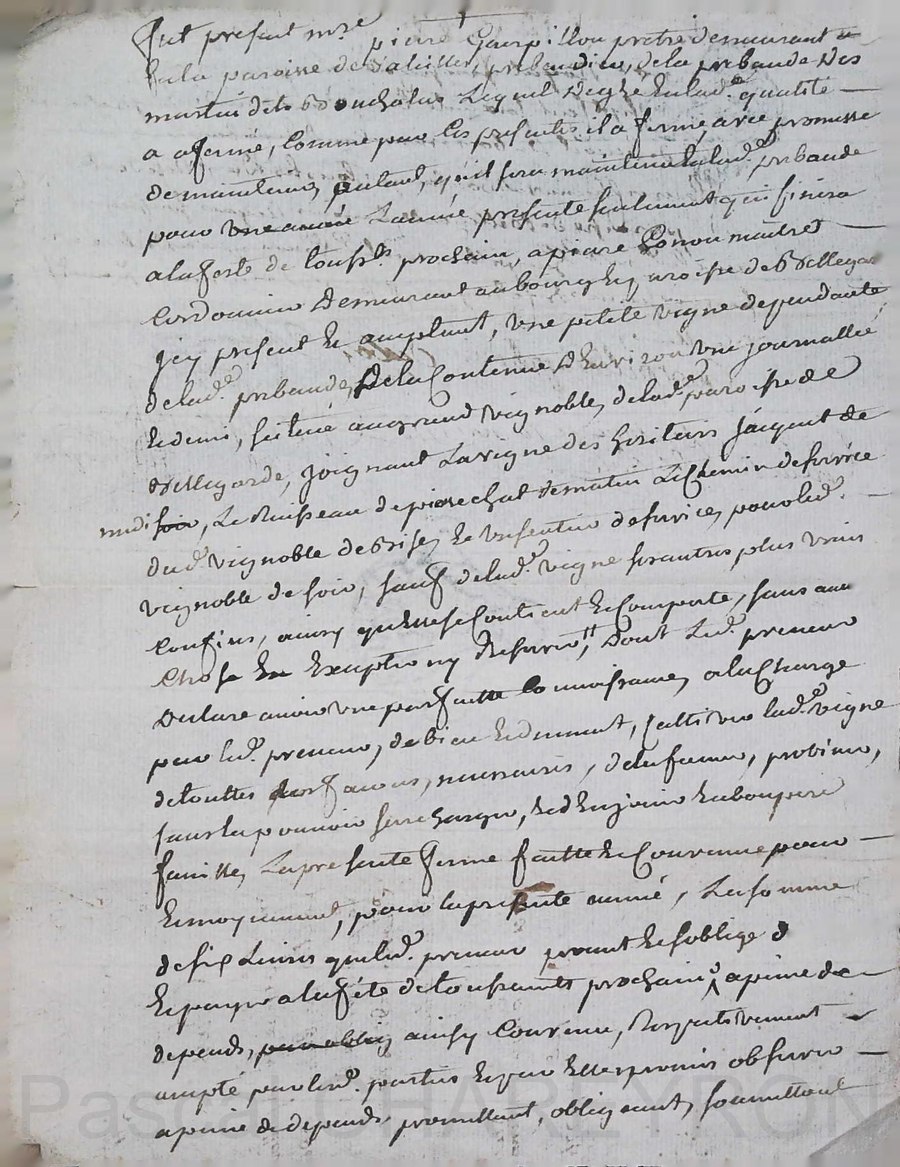 fut present m.re pierre Gourpillou pretre demeurant
en la paroisse de prebendier, de la prebande des
martin de Lequel de gré en lad.e qualité
a afermé, comme par les presentes il a fermé, avec promesse
de maintenir, autant qu'il sera maintenu en lad.e prebande
pour une année L'année presente seulement qui finira
a la feste de tousts prochain, a piere maitre
Cordonnier demeurant au bourg et paroisse de Bellegar
jcy present et acceptant, une petite vigne dependante
de lad.e prebande, de la Contenue d'Environ une journallée
et demi, scituée au grand vignoble, de lad.e paroisse de
Bellegarde, joignant La vigne des heritiers jacques de
midi, Le Ruisseau de de matin Le Chemin de service
dud. vignoble de Bise, et un sentier de service pour led.
vignoble de soir, sauf de lad.e vigne ses autres plus vrais
Confins, ainsy qu'elle se Contient et Comporte, sans aucu
Chose En Exception ny Reserve, Dont Led. preneur
Declare avoir une parfaitte Connoissance, a la Charge
par led. preneur, de bien et duement, Cultiver lad.e vigne
de touttes façons, necessaires, de la fumer, provinier,
sans la pouvoir et d'En jouir En bon pere
famille, La presente ferme faitte et Convenue pour
et moyennant, pour la presente année, La somme
de six Livres que led. preneur promet et s'oblige
et payer a la fête de toussaints prochaine, a peine de
depends, ainsy Convenu, Respectivement
accepté par lesd. parties et par Elles promis observer
a peine de depends, promettant, obligeant, soumettant
Pascal CHAREYRON